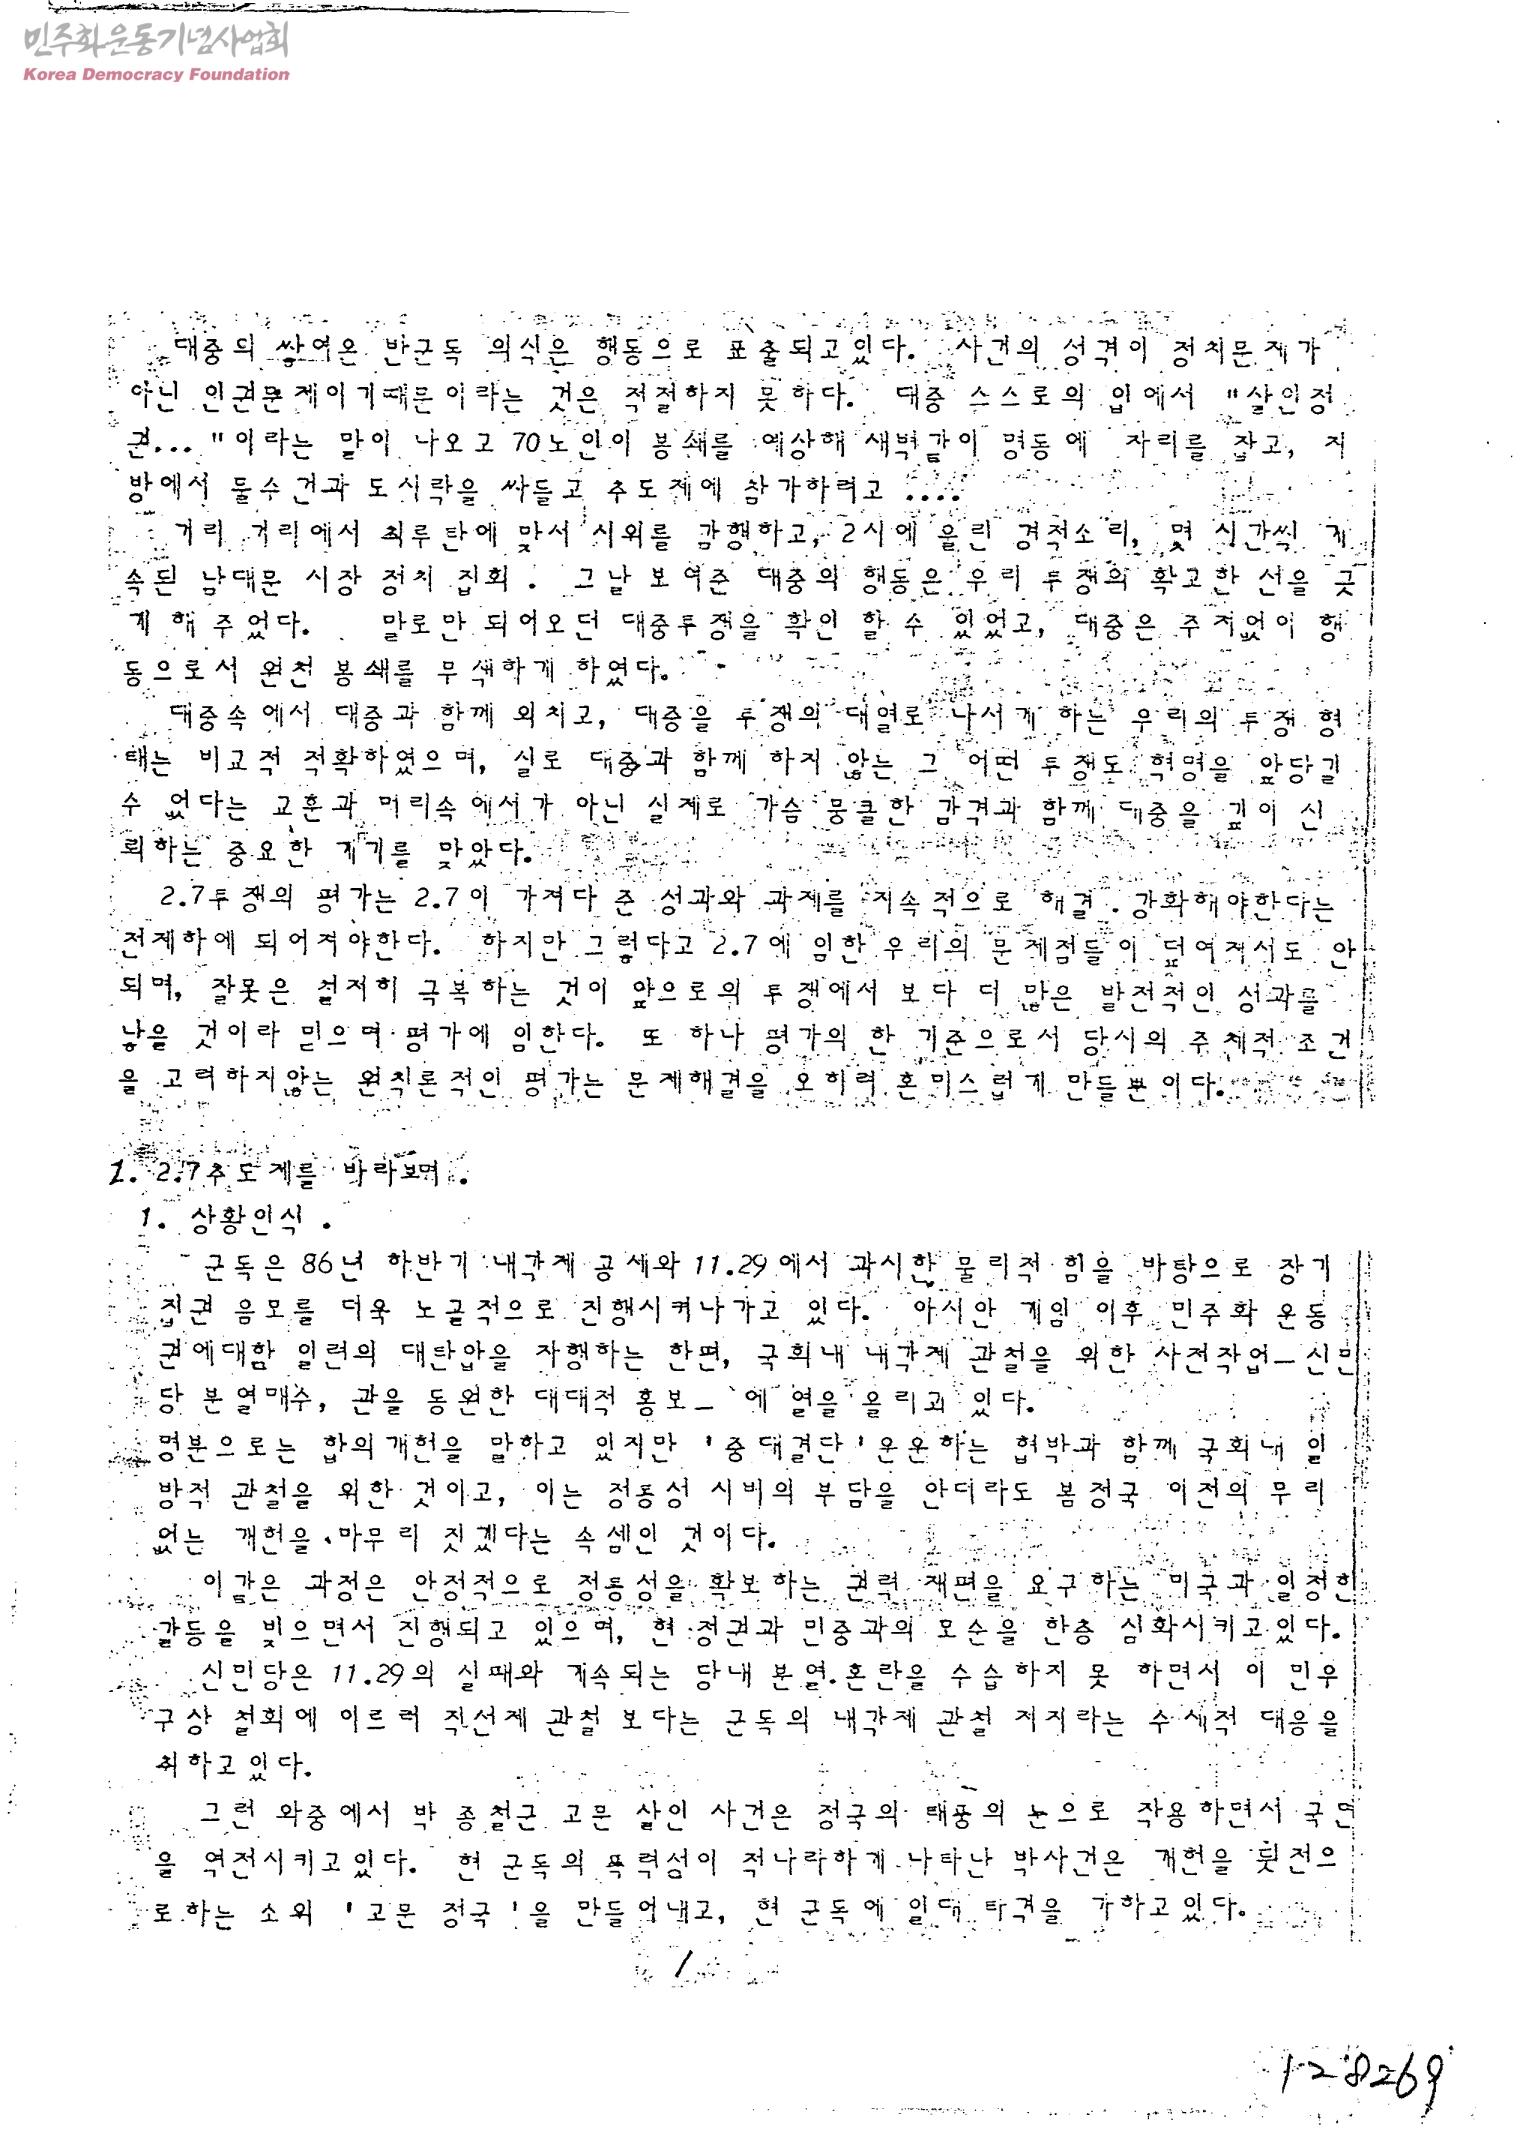 민주화운동기념사업회
Korea Democracy Foundation
대중의 쌓여온 반군독 의식은 행동으로 표출되고있다. 사건의 성격이 정치문제가
아닌 인권문제이기때문이라는 것은 적절하지 못하다. 대중 스스로의 입에서 "살인정
권..."이라는 말이 나오고 70노인이 봉쇄를 예상해 새벽같이 명동에 자리를 잡고, 지
방에서 물수건과 도시락을 싸들고 추도제에 참가하려고 ....
거리 거리에서 최루탄에 맞서 시위를 감행하고, 2시에 울린 경적소리, 몇 시간씩 계
속된 남대문 시장 정치 집회. 그날 보여준 대중의 행동은 우리 투쟁의 확고한 선을 긋
게 해 주었다. 말로만 되어오던 대중투쟁을 확인 할 수 있었고, 대중은 주저없이 행
동으로서 원천 봉쇄를 무색하게 하였다.
대중속에서 대중과 함께 외치고, 대중을 투쟁의 대열로 나서게 하는 우리의 투쟁 형
태는 비교적 적확하였으며, 실로 대중과 함께 하지 않는 그 어떤 투쟁도 혁명을 앞당길
수 없다는 교훈과 머리속에서가 아닌 실제로 가슴 뭉클한 감격과 함께 대중을 깊이 신
뢰하는 중요한 계기를 맞았다.
2.7투쟁의 평가는 2.7이 가져다 준 성과와 과제를 지속적으로 해결.강화해야한다는
전제하에 되어져야한다. 하지만 그렇다고 2.7에 임한 우리의 문제점들이 덮여져서도 안
되며, 잘못은 철저히 극복하는 것이 앞으로의 투쟁에서 보다 더 많은 발전적인 성과를
낳을 것이라 믿으며 평가에 임한다. 또 하나 평가의 한 기준으로서 당시의 주체적 조건
을 고려하지않는 원칙론적인 평가는 문제해결을 오히려 혼미스럽게 만들뿐이다.
1. 2.7추도제를 바라보며.
1. 상황인식.
군독은 86년 하반기 내각제 공세와 11.29에서 과시한 물리적 힘을 바탕으로 장기
집권 음모를 더욱 노골적으로 진행시켜나가고 있다. 아시안 게임 이후 민주화 운동
권에대함 일련의 대탄압을 자행하는 한편, 국회내 내각제 관철을 위한 사전작업—신민
당 분열매수, 관을 동원한 대대적 홍보— 에 열을 올리고 있다.
명분으로는 합의개헌을 말하고 있지만 '중대결단'운운하는 협박과 함께 국회내 일
방적 관철을 위한 것이고, 이는 정통성 시비의 부담을 안더라도 봄정국 이전의 무리
없는 개헌을 마무리 짓겠다는 속셈인 것이다.
이같은 과정은 안정적으로 정통성을 확보하는 권력 재편을 요구하는 미국과 일정한
갈등을 빚으면서 진행되고 있으며, 현 정권과 민중과의 모순을 한층 심화시키고있다.
신민당은 11.29의 실패와 계속되는 당내 분열.혼란을 수습하지 못 하면서 이 민우
구상 철회에 이르러 직선제 관철 보다는 군독의 내각제 관철 저지라는 수세적 대응을
취하고있다.
그런 와중에서 박 종철군 고문 살인 사건은 정국의 태풍의 눈으로 작용하면서 국면
을 역전시키고있다. 현 군독의 폭력성이 적나라하게 나타난 박사건은 개헌을 뒷전으
로하는 소위 '고문 정국'을 만들어내고, 현 군독에 일대 타격을 가하고있다.
1
128269